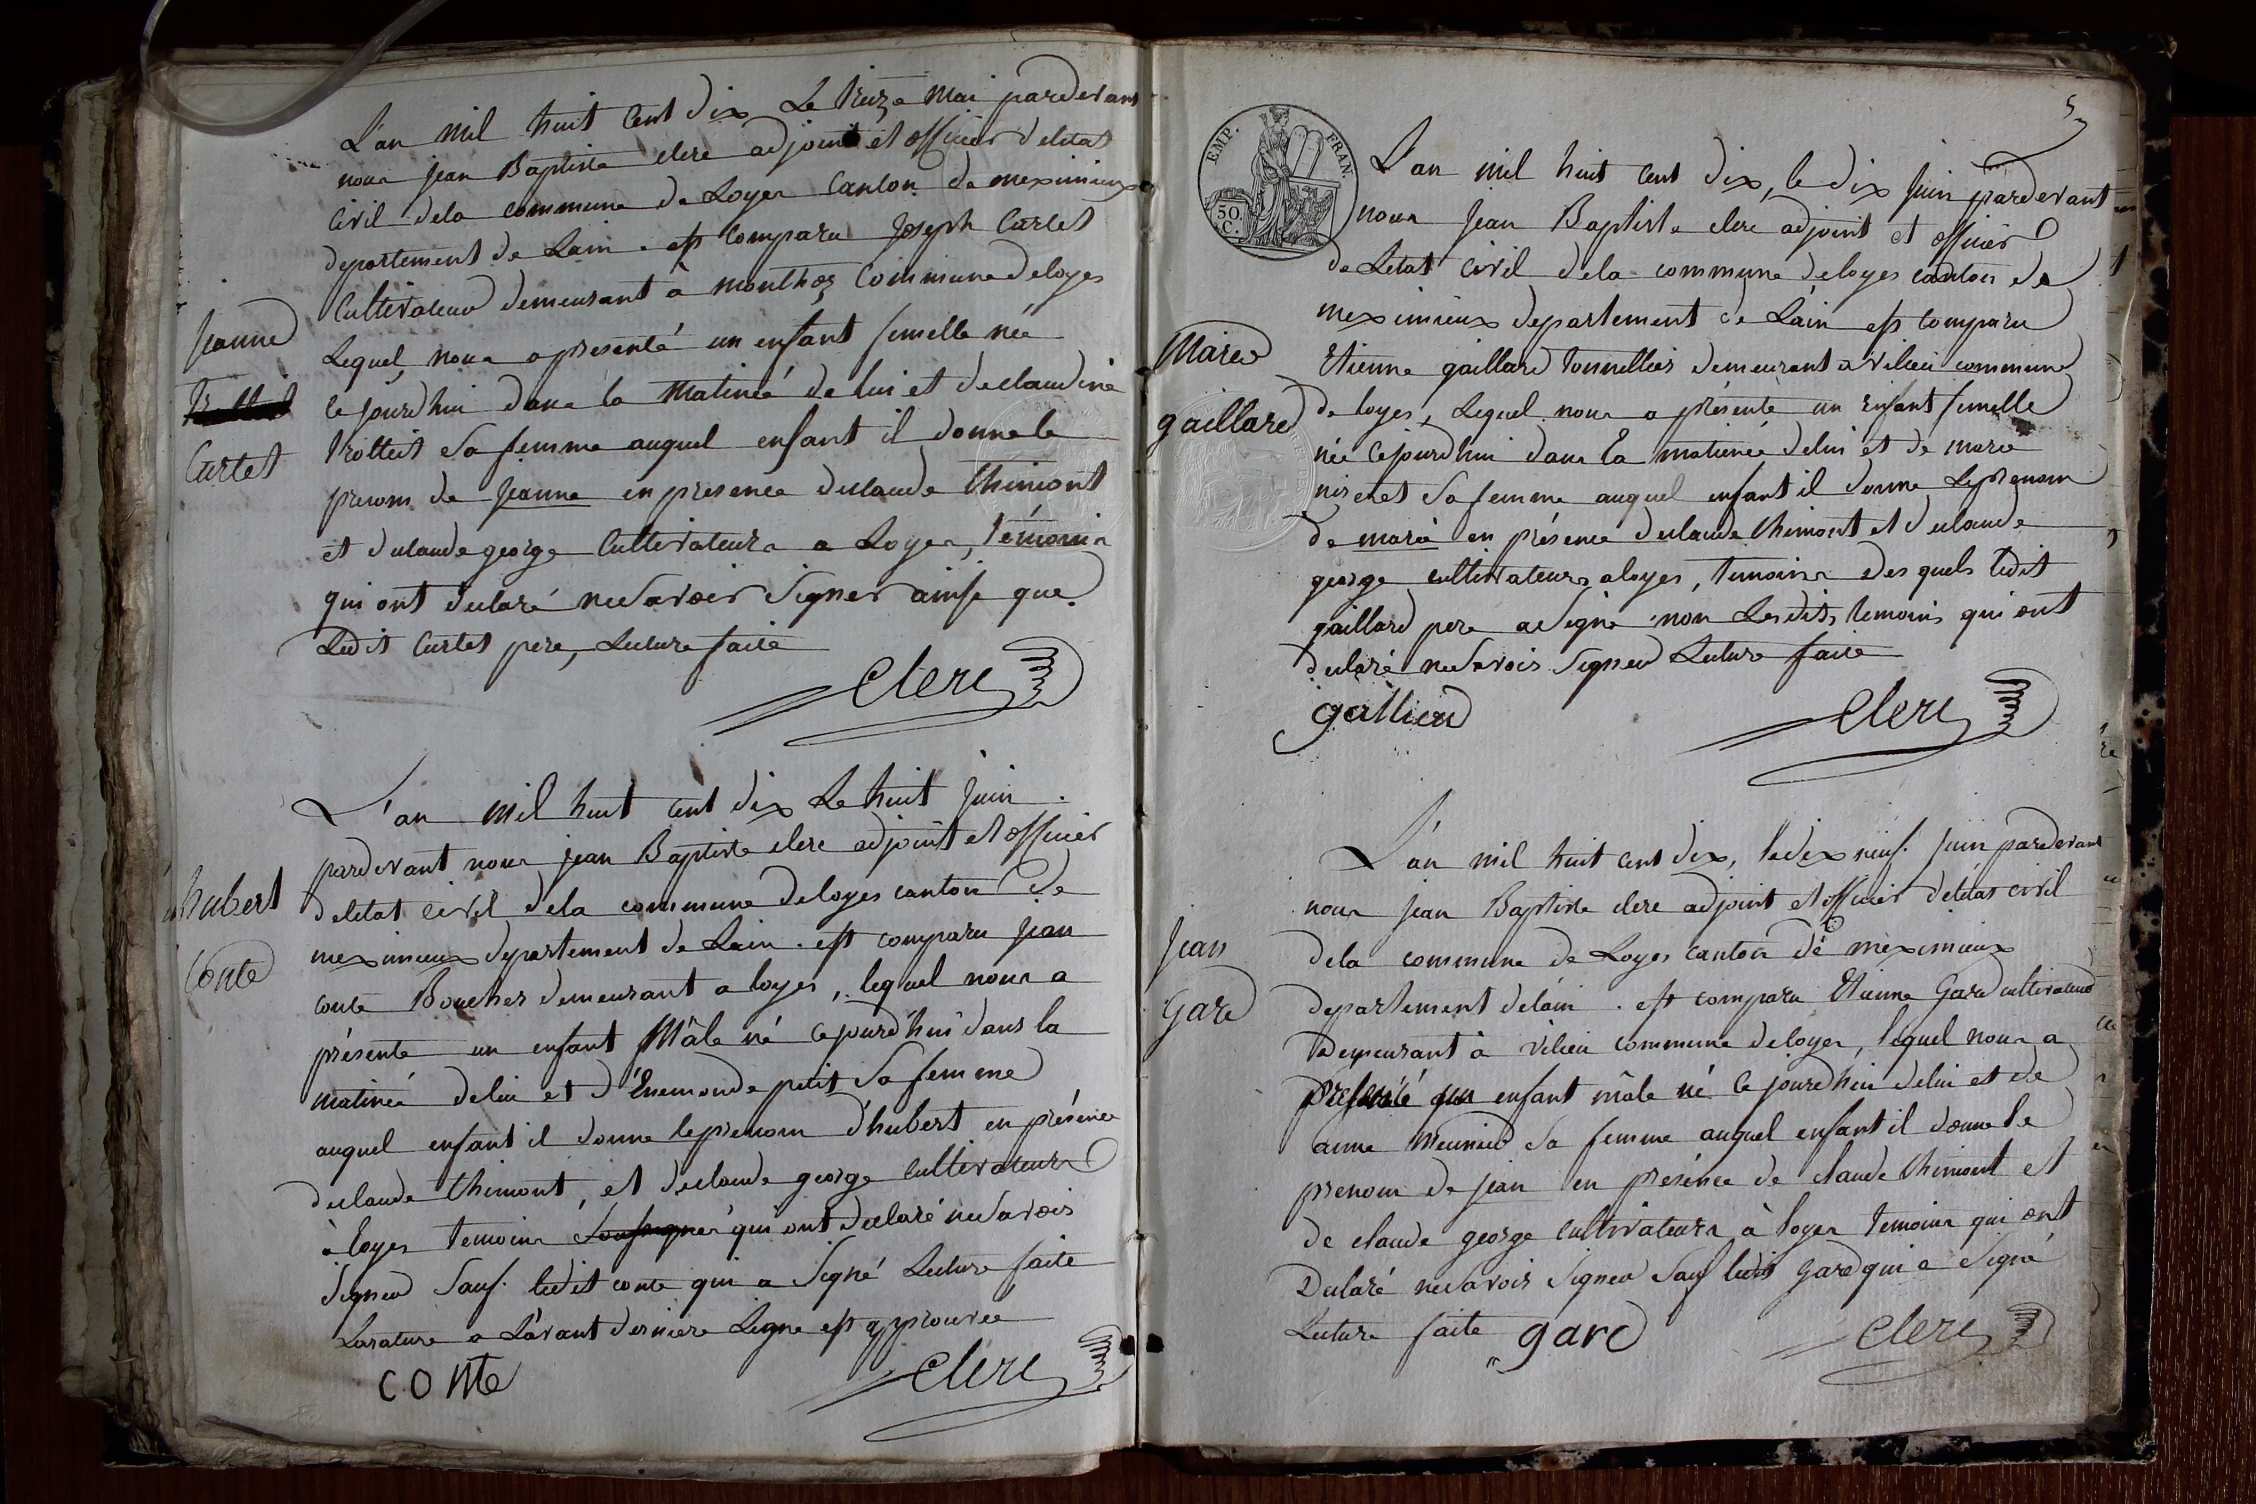 L'an mil huit cent dix Le treize Mai pardevant
nous jean Baptiste clerc adjoint et officier d'eletat
Civil dela commune de Loyes Canton de meximieux
departement de Lain. est Comparu Joseph Curtet
Cultivateur demeurant à monthoz Commune deloyes
Lequel nous a presenté un enfant femelle née
ce jourdhui dans la Matineé de lui et de claudine
trottet Sa femme auquel enfant il donne le
prenom de jeanne en presence declaude thimont
et declaude george Cultivateurs a Loyes, témoins
qui ont declaré ne Savoir Signer ainsi que
Ledit Curtet pere, Lecture faite
Clerc
Jeanne
Curtet
L'an mil huit cent dix Le huit juin
pardevant nous jean Baptiste clerc adjoint et officier
deletat civil dela commune deloyes canton de
meximieux departement de Lain. est comparu jean
conte Boucher demeurant a loyes, lequel nous a
présenté un enfant Mâle né cejourd'hui dans la
matineé delui et d'Enemonde petit Sa femme
auquel enfant il donne leprenom d'hubert en présence
declaude thimont, et declaude george cultivateurs
à loyes temoins Soussignés qui ont declaré ne Savoir
Signer Sauf ledit conte qui a Signé Lecture faite
Larature a Lavant derniere Ligne est approuvee
conte
Clerc
hubert
Conte
5
EMP. FRAN.
50 C.
L'an mil huit cent dix, le dix juin pardevant
nous jean Baptiste clerc adjoint et officier
de Letat civil dela commune deloyes canton de
meximieux departement de Lain est comparu
Etienne gaillard tonnellier demeurant a vilieu commune
de loyes, Lequel nous a présenté un enfant femelle
née cejourdhui dans la matineé delui et de marie
nizeret Sa femme auquel enfant il donne Leprenom
de marie en présence declaude thimont et declaude
george cultivateurs aloyes, temoins des quels ledit
gaillard pere a Signé non Lesdits temoins qui ont
declaré ne Savoir Signer Lecture faite
Clerc
Marie
gaillard
L'an mil huit cent dix, ledix neuf juin pardevant
nous jean Baptiste clerc adjoint et officier deletat civil
dela commune de Loyes canton de meximieux
departement delain. est comparu Etienne Gard cultivateur
demeurant à vilieu commune deloyes, lequel nous a
présenté un enfant mâle né ce jourdhui delui et de
anne Meunier Sa femme auquel enfant il donne le
prenom de jean en présence de claude thimont et
de claude george cultivateurs à loyes temoins qui ont
Declaré ne Savoir Signer Sauf ledit Gard qui a Signé
Lecture faite
gard
Clerc
Jean
Gard